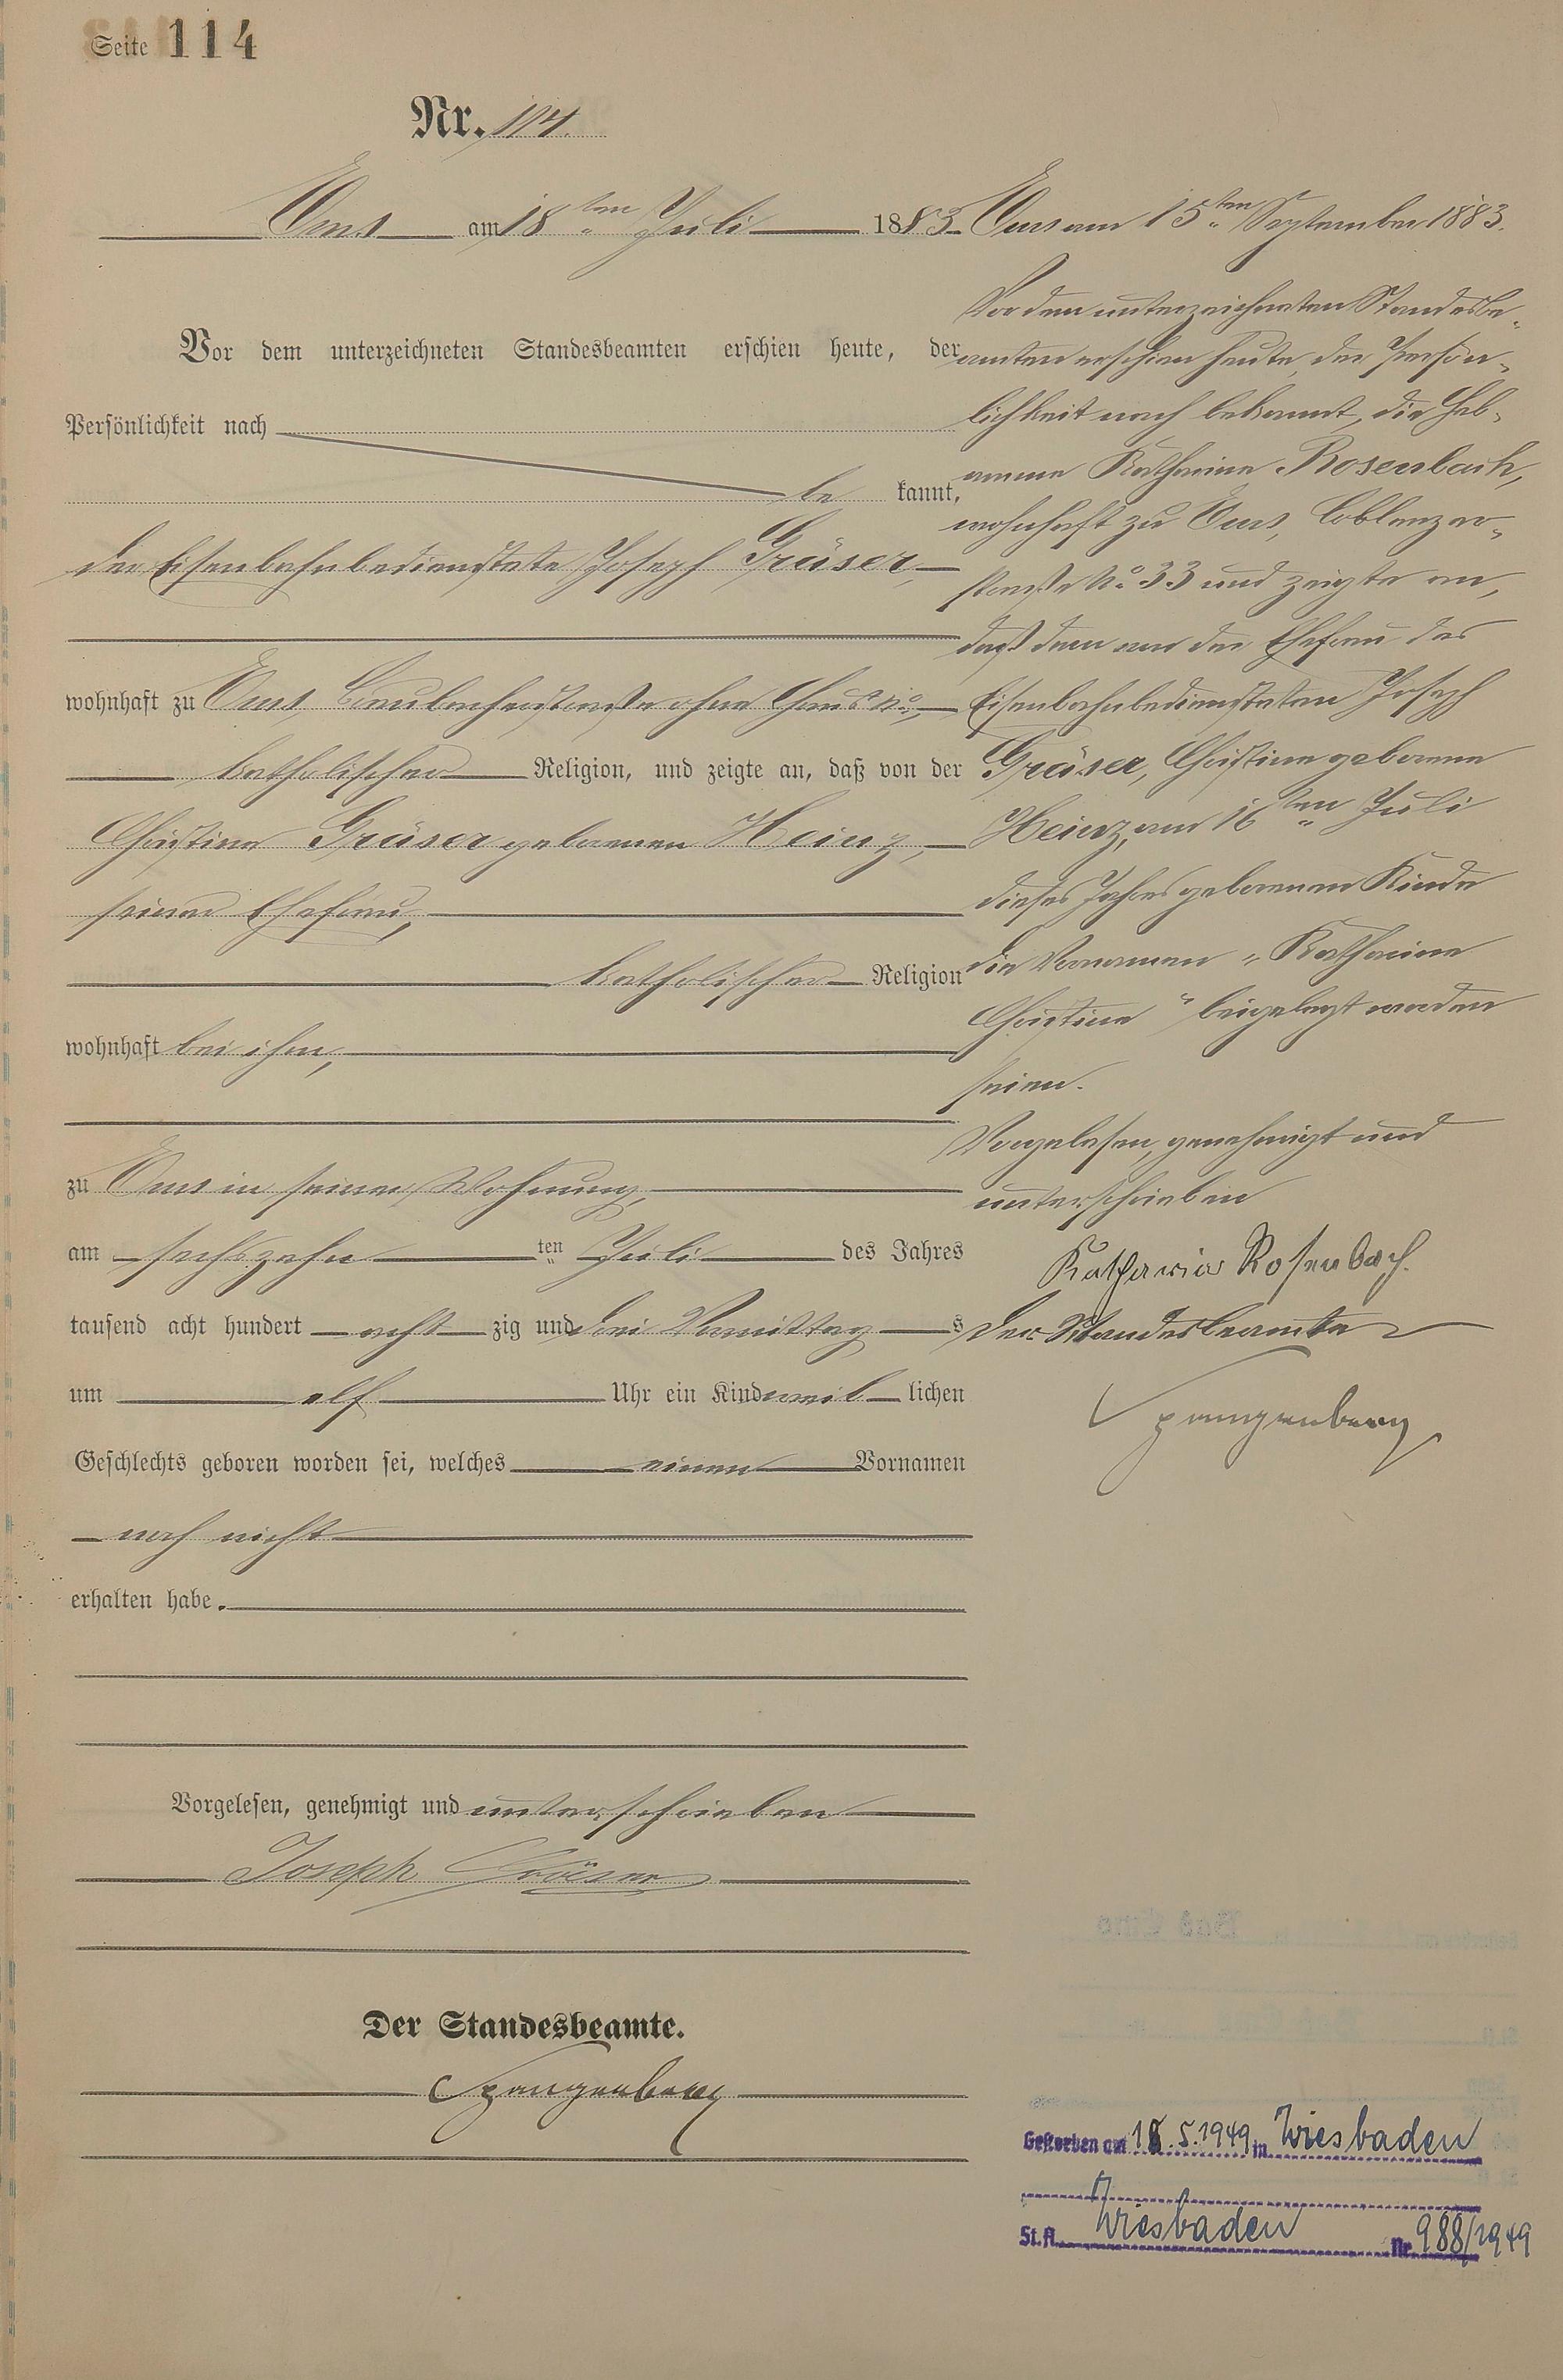 Seite 114
Nr. 114.
Ems am 18ten Juli 1883
Vor dem unterzeichneten Standesbeamten erschien heute, der
Persönlichkeit nach
be kannt,
der Eisenbahnbedienstete Joseph Gräser,
wohnhaft zu Ems, ohne Haus No.,
katholischer Religion, und zeigte an, daß von der
Christine Gräser geborenen Heinz,
seiner Ehefrau,
katholischer Religion
wohnhaft bei ihm,
zu Ems in seiner Wohnung,
am sechszehn ten Juli des Jahres
tausend acht hundert acht zig und drei Vormittags
um elf Uhr ein Kind weib lichen
Geschlechts geboren worden sei, welches einen Vornamen
noch nicht
erhalten habe.
Vorgelesen, genehmigt und unterschrieben
Joseph Gräser
Der Standesbeamte.
Spangenberg
Ems am 15ten September 1883.
Vor dem unterzeichneten Standesbe-
amten erschien heute, der Persön-
lichkeit nach bekannt, die Heb-
amme Katharina Rosenbach,
wohnhaft zu Ems, Coblenzer-
straße No. 33 und zeigte an,
daß dem von der Ehefrau des
Eisenbahnbediensteten Joseph
Gräser, Christine geborene
Heinz, am 16ten Juli
dieses Jahres geborenen Kinde
die Vornamen „Katharina
Christine“ beigelegt worden
seien.
Vorgelesen, genehmigt und
unterschrieben
Katharina Rosenbach.
Der Standesbeamte
Spangenberg
Gestorben am 18.5.1949 in Wiesbaden
St.A. Wiesbaden Nr. 988/1949